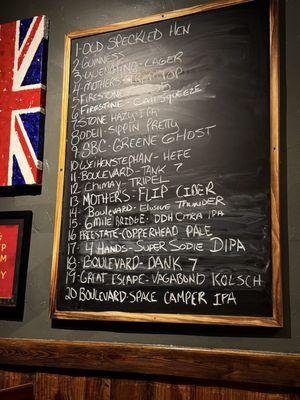 1- OLD SPECKLED HEN
2- GUINNESS
3- QUENCHING- LAGER
4- MOTHERS
5- FIRESTONE
6- FIRESTONE- SQUEEZE
7- STONE HAZY- IPA
8- ODELL- SIPPIN PRETTY
9- GREENE GHOST
10- WEIHENSTEPHAN- HEFE
11- BOULEVARD- TANK 7
12- CHIMAY- TRIPEL
13 MOTHERS- FLIP CIDER
14- BOULEVARD- ELUSIVE THUNDER
15- 6 MILE BRIDGE- DDH CITRA IPA
16 FREESTATE- COPPERHEAD PALE
17- 4 HANDS- SUPER SODIE DIPA
18- BOULEVARD- DANK 7
19- GREAT ESCAPE- VAGABOND KOLSCH
20 BOULEVARD- SPACE CAMPER IPA